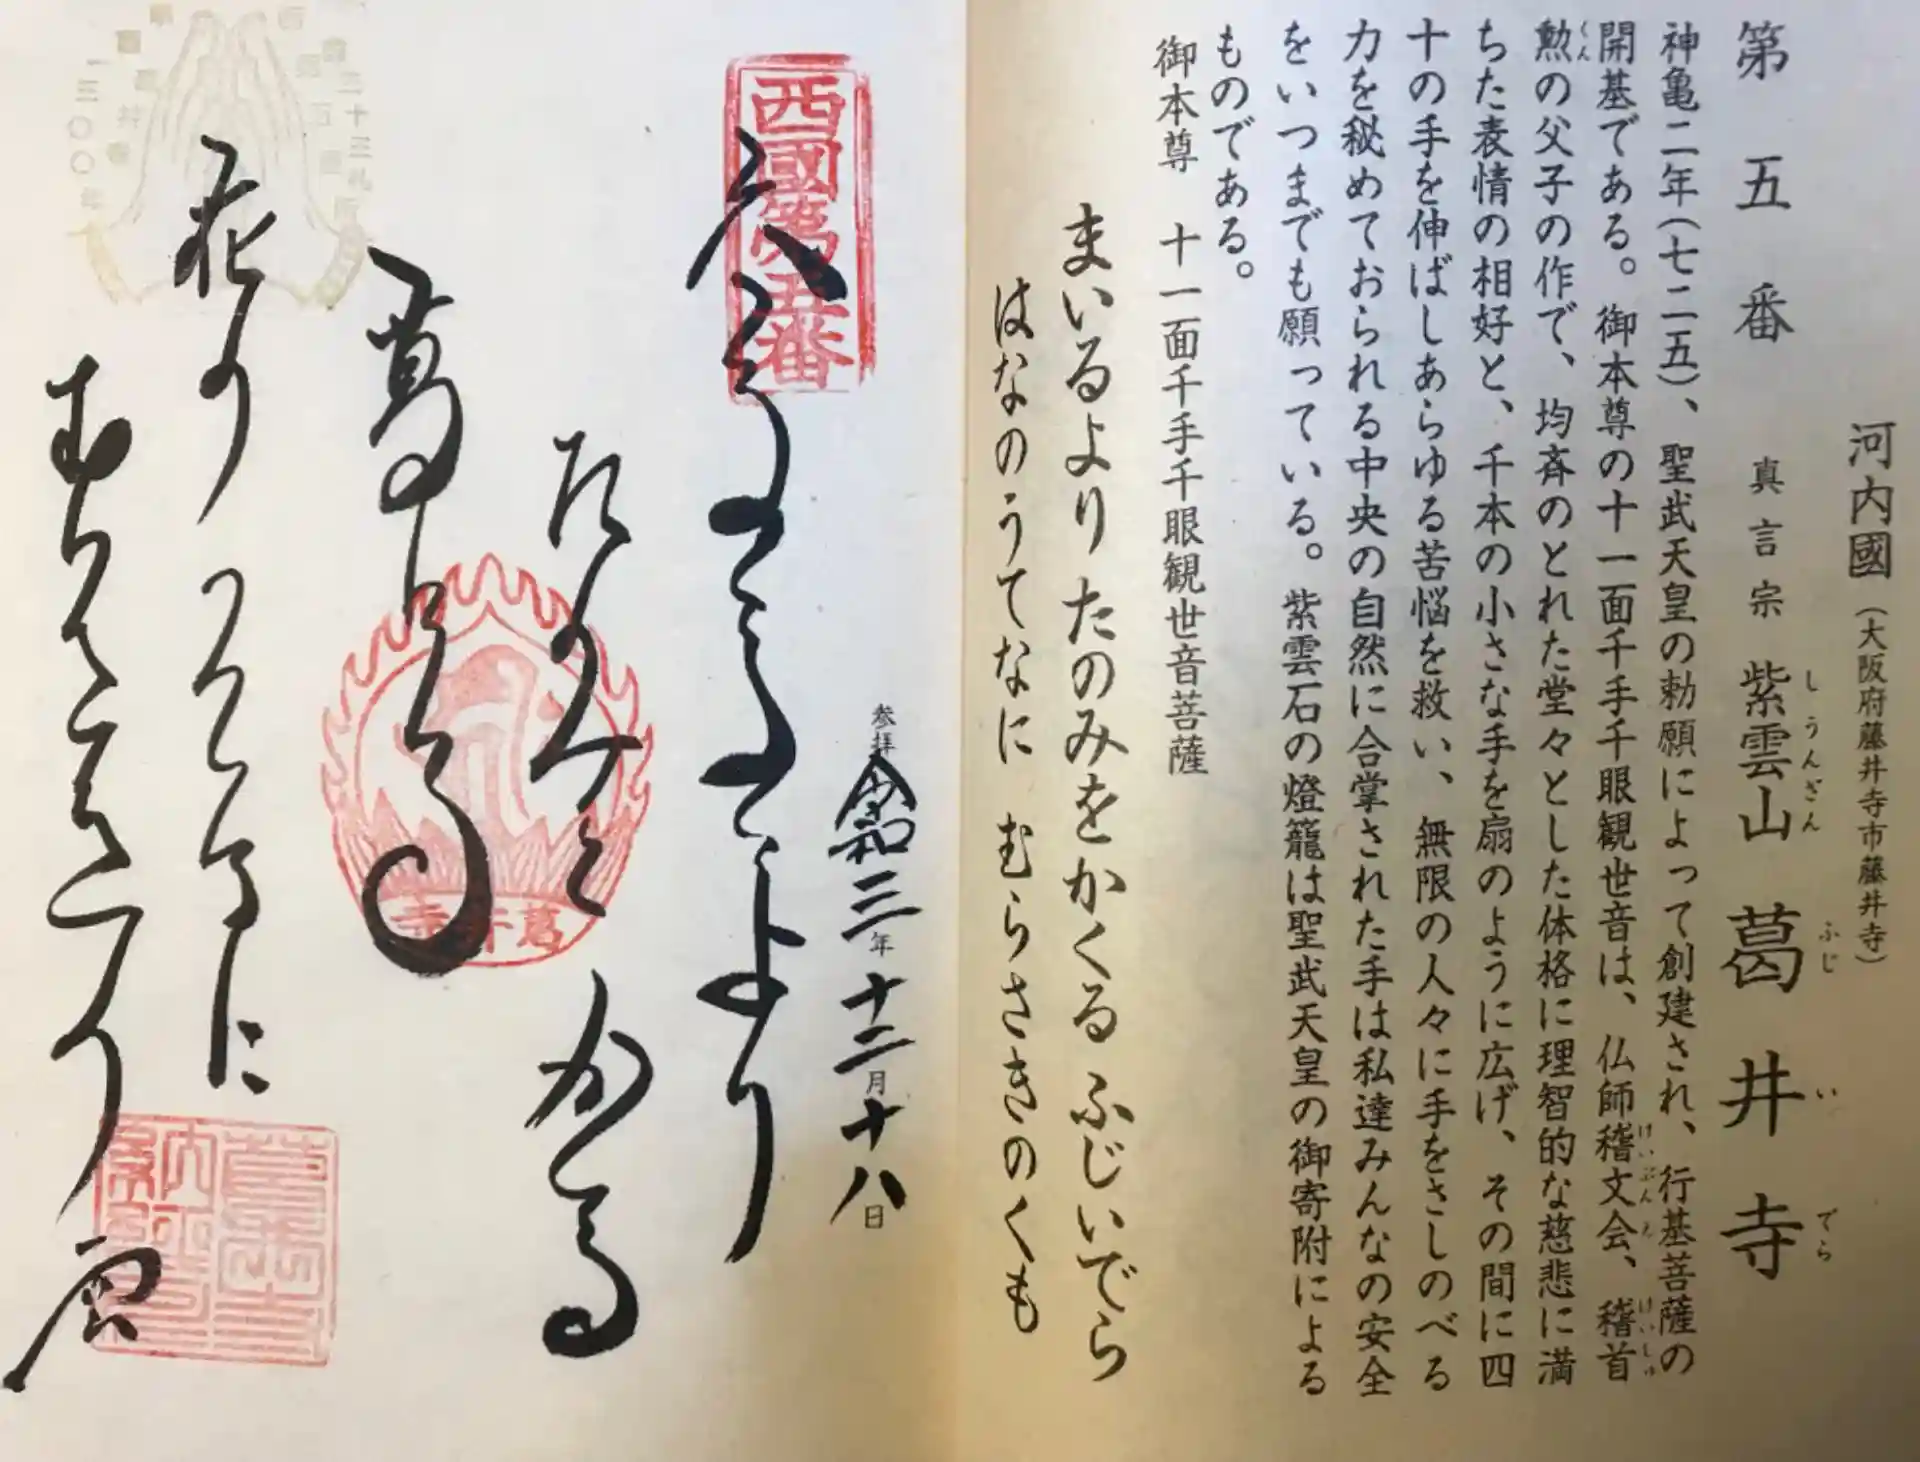 河内國（大阪府藤井寺市藤井寺）
第五番　真言宗　紫雲山　葛井寺
しうんざん　ふじいでら
神亀二年（七二五）、聖武天皇の勅願によって創建され、行基菩薩の
開基である。御本尊の十一面千手千眼観世音は、仏師稽文会、稽首
けいぶんえ　けいしゅ
勲の父子の作で、均斉のとれた堂々とした体格に理智的な慈悲に満
くん
ちた表情の相好と、千本の小さな手を扇のように広げ、その間に四
十の手を伸ばしあらゆる苦悩を救い、無限の人々に手をさしのべる
力を秘めておられる中央の自然に合掌された手は私達みんなの安全
をいつまでも願っている。紫雲石の燈籠は聖武天皇の御寄附による
ものである。
御本尊　十一面千手千眼観世音菩薩
まいるより たのみをかくる ふじいでら
はなのうてなに むらさきのくも
西國第五番
参拝 令和三年十二月十八日
葛井寺
花の
雲